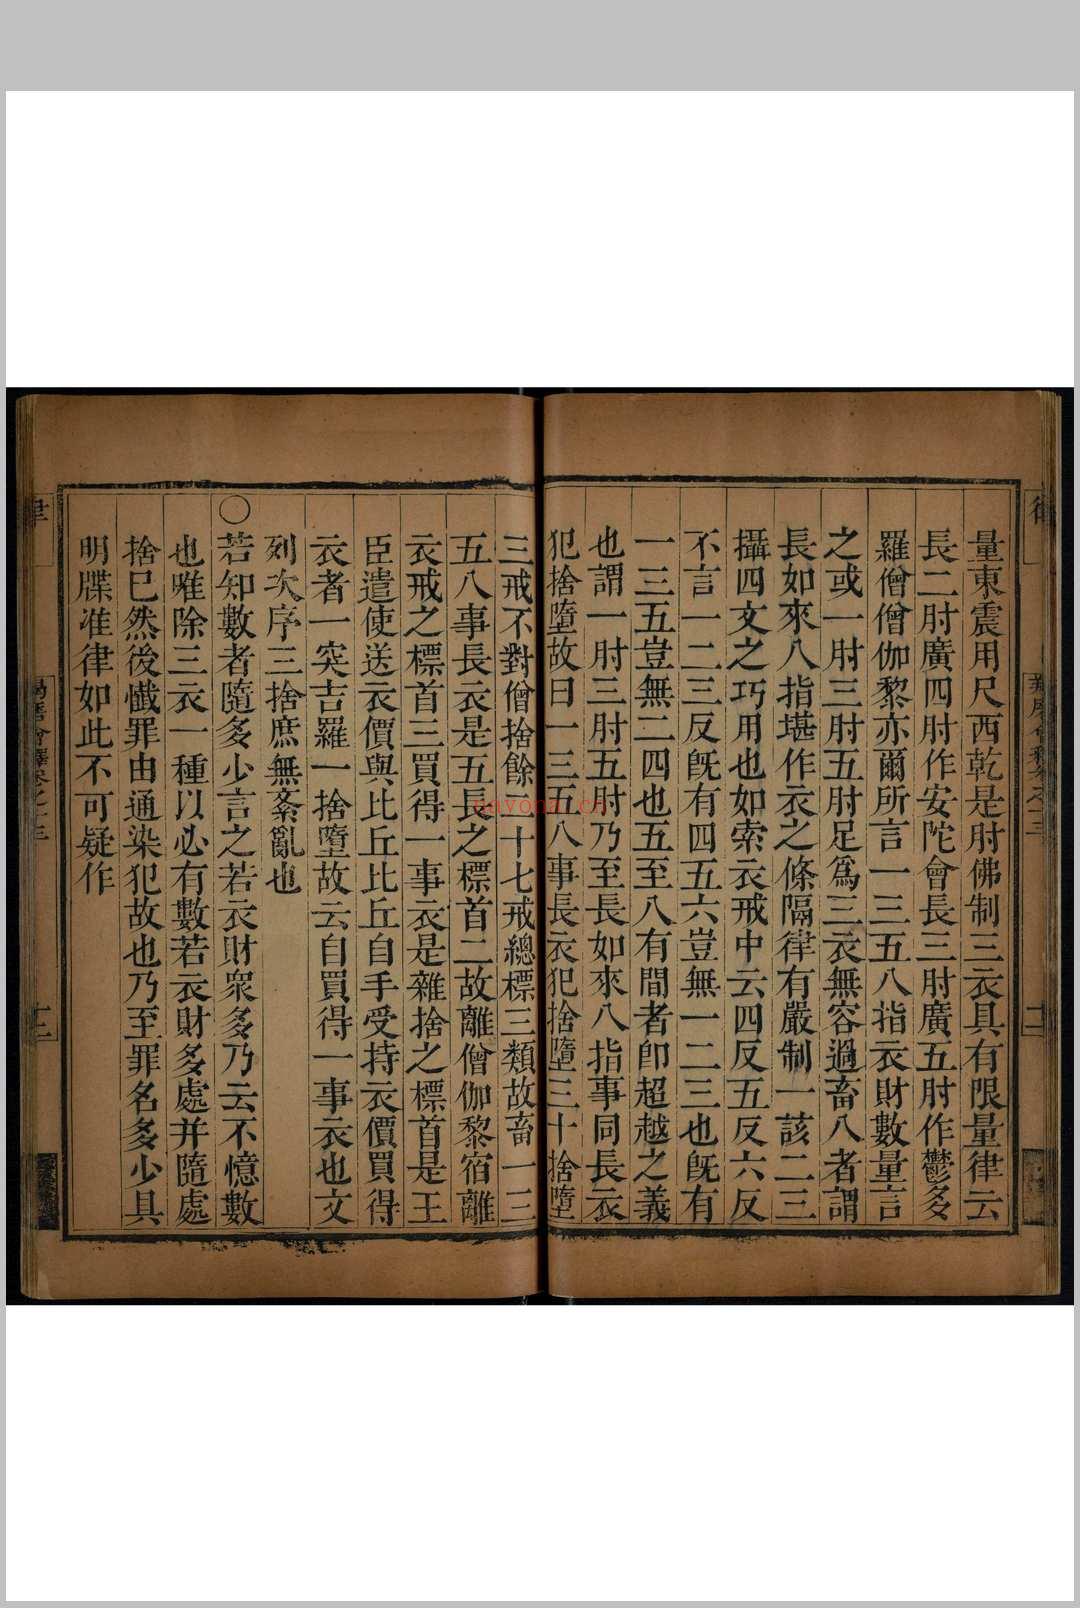 量東震用尺西乾是肘佛制三衣具有限量律云
長二肘廣四肘作安陀會長三肘廣五肘作鬱多
羅僧僧伽黎亦爾所言一三五八指衣財數量言
之或一肘三肘五肘足爲三衣無容過畜八者謂
長如來八指堪作衣之條隔律有嚴制一該二三
攝四文之巧用也如索衣戒中云四反五反六反
不言一二三反旣有四五六豈無一二三也旣有
一三五豈無二四也五至八有間者卽超越之義
也謂一肘三肘五肘乃至長如來八指事同長衣
犯捨墮故曰一三五八事長衣犯捨墮三十捨墮
三戒不對僧捨餘二十七戒總標三類故畜一三
五八事長衣是五長之標首二故離僧伽黎宿離
衣戒之標首三買得一事衣是雜捨之標首是王
臣遣使送衣價與比丘比丘自手受持衣價買得
衣者一突吉羅一捨墮故云自買得一事衣也文
列次序三捨庶無紊亂也
○若知數者隨多少言之若衣財衆多乃云不憶數
也唯除三衣一種以必有數若衣財多處并隨處
捨已然後懺罪由通染犯故也乃至罪名多少具
明牒准律如此不可疑作
羯磨會釋卷之十三
十二
十三
nayoozi.cn